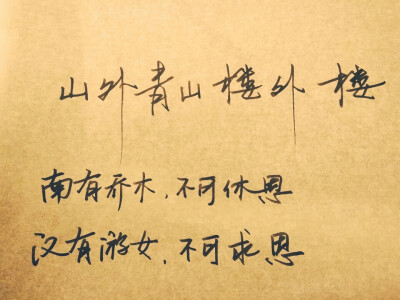 山外青山楼外楼
南有乔木，不可休思
汉有游女，不可求思